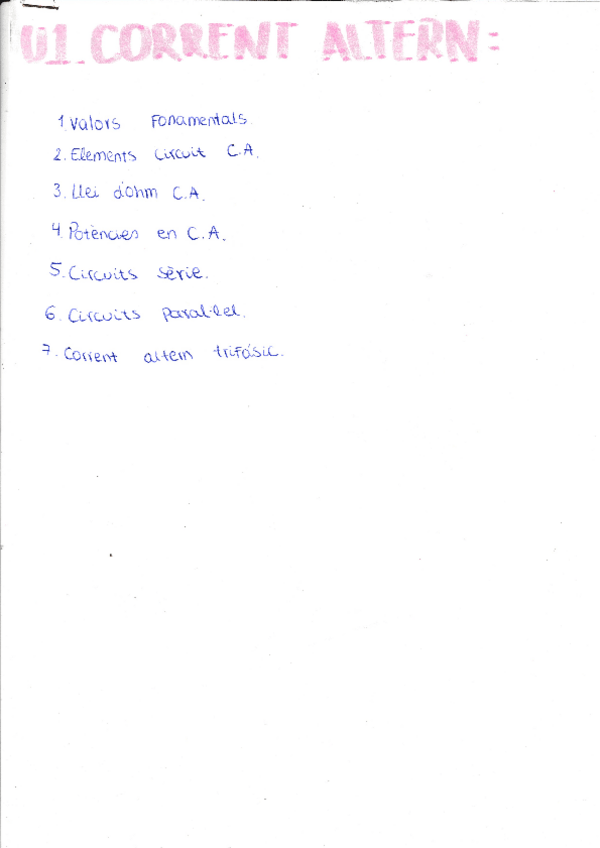 U1. CORRENT ALTERN:
1. Valors Fonamentals.
2. Elements circuit C.A.
3. Llei d'Ohm C.A.
4. Potències en C.A.
5. Circuits sèrie.
6. Circuits paral·lel.
7. Corrent altern trifàsic.